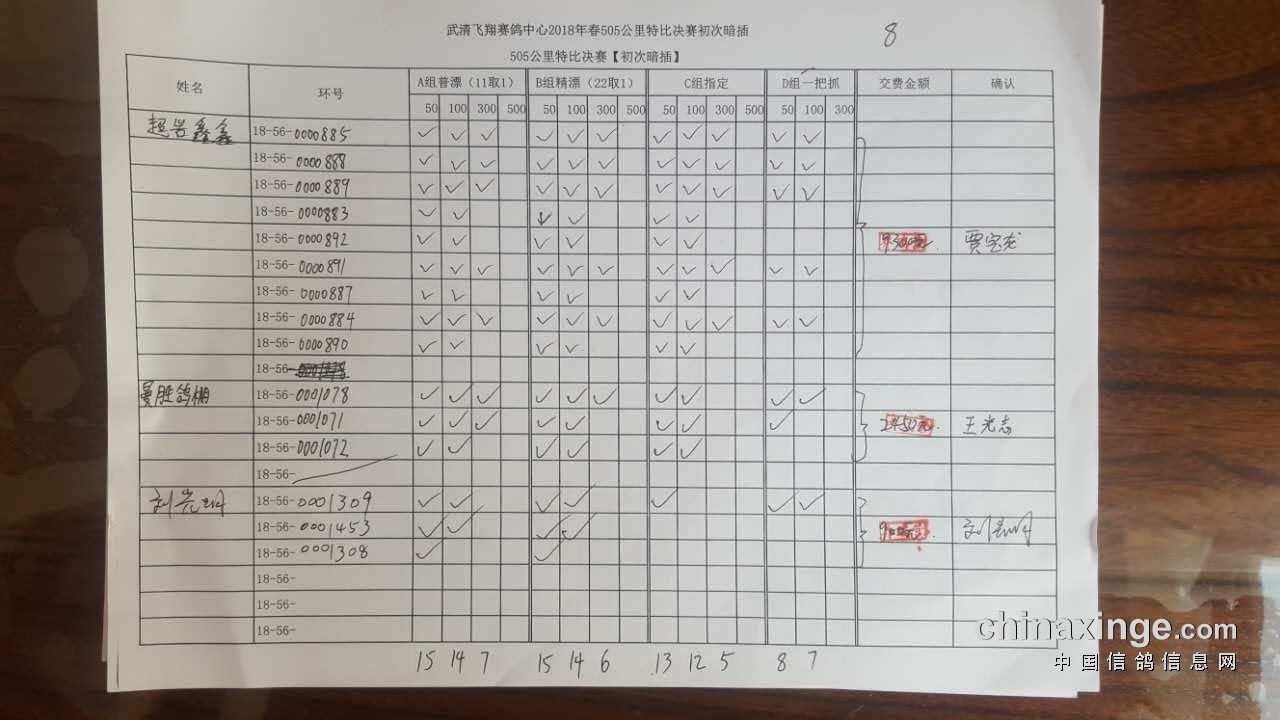 武清飞翔赛鸽中心2018年春505公里特比决赛初次暗插
8
505公里特比决赛【初次暗插】
姓名 环号 A组普漂（11取1） B组精漂（22取1） C组指定 D组一把抓 交费金额 确认
50 100 300 500 50 100 300 500 50 100 300 500 50 100 300
超岩鑫鑫 18-56-0000885 ✓ ✓ ✓ ✓ ✓ ✓ ✓ ✓ ✓ ✓ ✓
18-56-0000888 ✓ ✓ ✓ ✓ ✓ ✓ ✓ ✓ ✓ ✓ ✓
18-56-0000889 ✓ ✓ ✓ ✓ ✓ ✓ ✓ ✓ ✓ ✓ ✓
18-56-0000883 ✓ ✓ ✓ ✓ ✓ ✓
18-56-0000892 ✓ ✓ ✓ ✓ ✓ ✓ 贾宝龙
18-56-0000891 ✓ ✓ ✓ ✓ ✓ ✓ ✓ ✓ ✓ ✓ ✓
18-56-0000887 ✓ ✓ ✓ ✓ ✓ ✓
18-56-0000884 ✓ ✓ ✓ ✓ ✓ ✓ ✓ ✓ ✓ ✓ ✓
18-56-0000890 ✓ ✓ ✓ ✓ ✓ ✓
18-56-
曼胜鸽棚 18-56-0001078 ✓ ✓ ✓ ✓ ✓ ✓ ✓ ✓ ✓ ✓
18-56-0001071 ✓ ✓ ✓ ✓ ✓ ✓ ✓ ✓ 2450元. 王光志
18-56-0001072 ✓ ✓ ✓ ✓ ✓ ✓
18-56-
刘 18-56-0001309 ✓ ✓ ✓ ✓ ✓ ✓ ✓
18-56-0001453 ✓ ✓ ✓ ✓ 刘
18-56-0001308 ✓ ✓
18-56-
18-56-
18-56-
15 14 7 15 14 6 13 12 5 8 7
chinaxinge.com
中国信鸽信息网